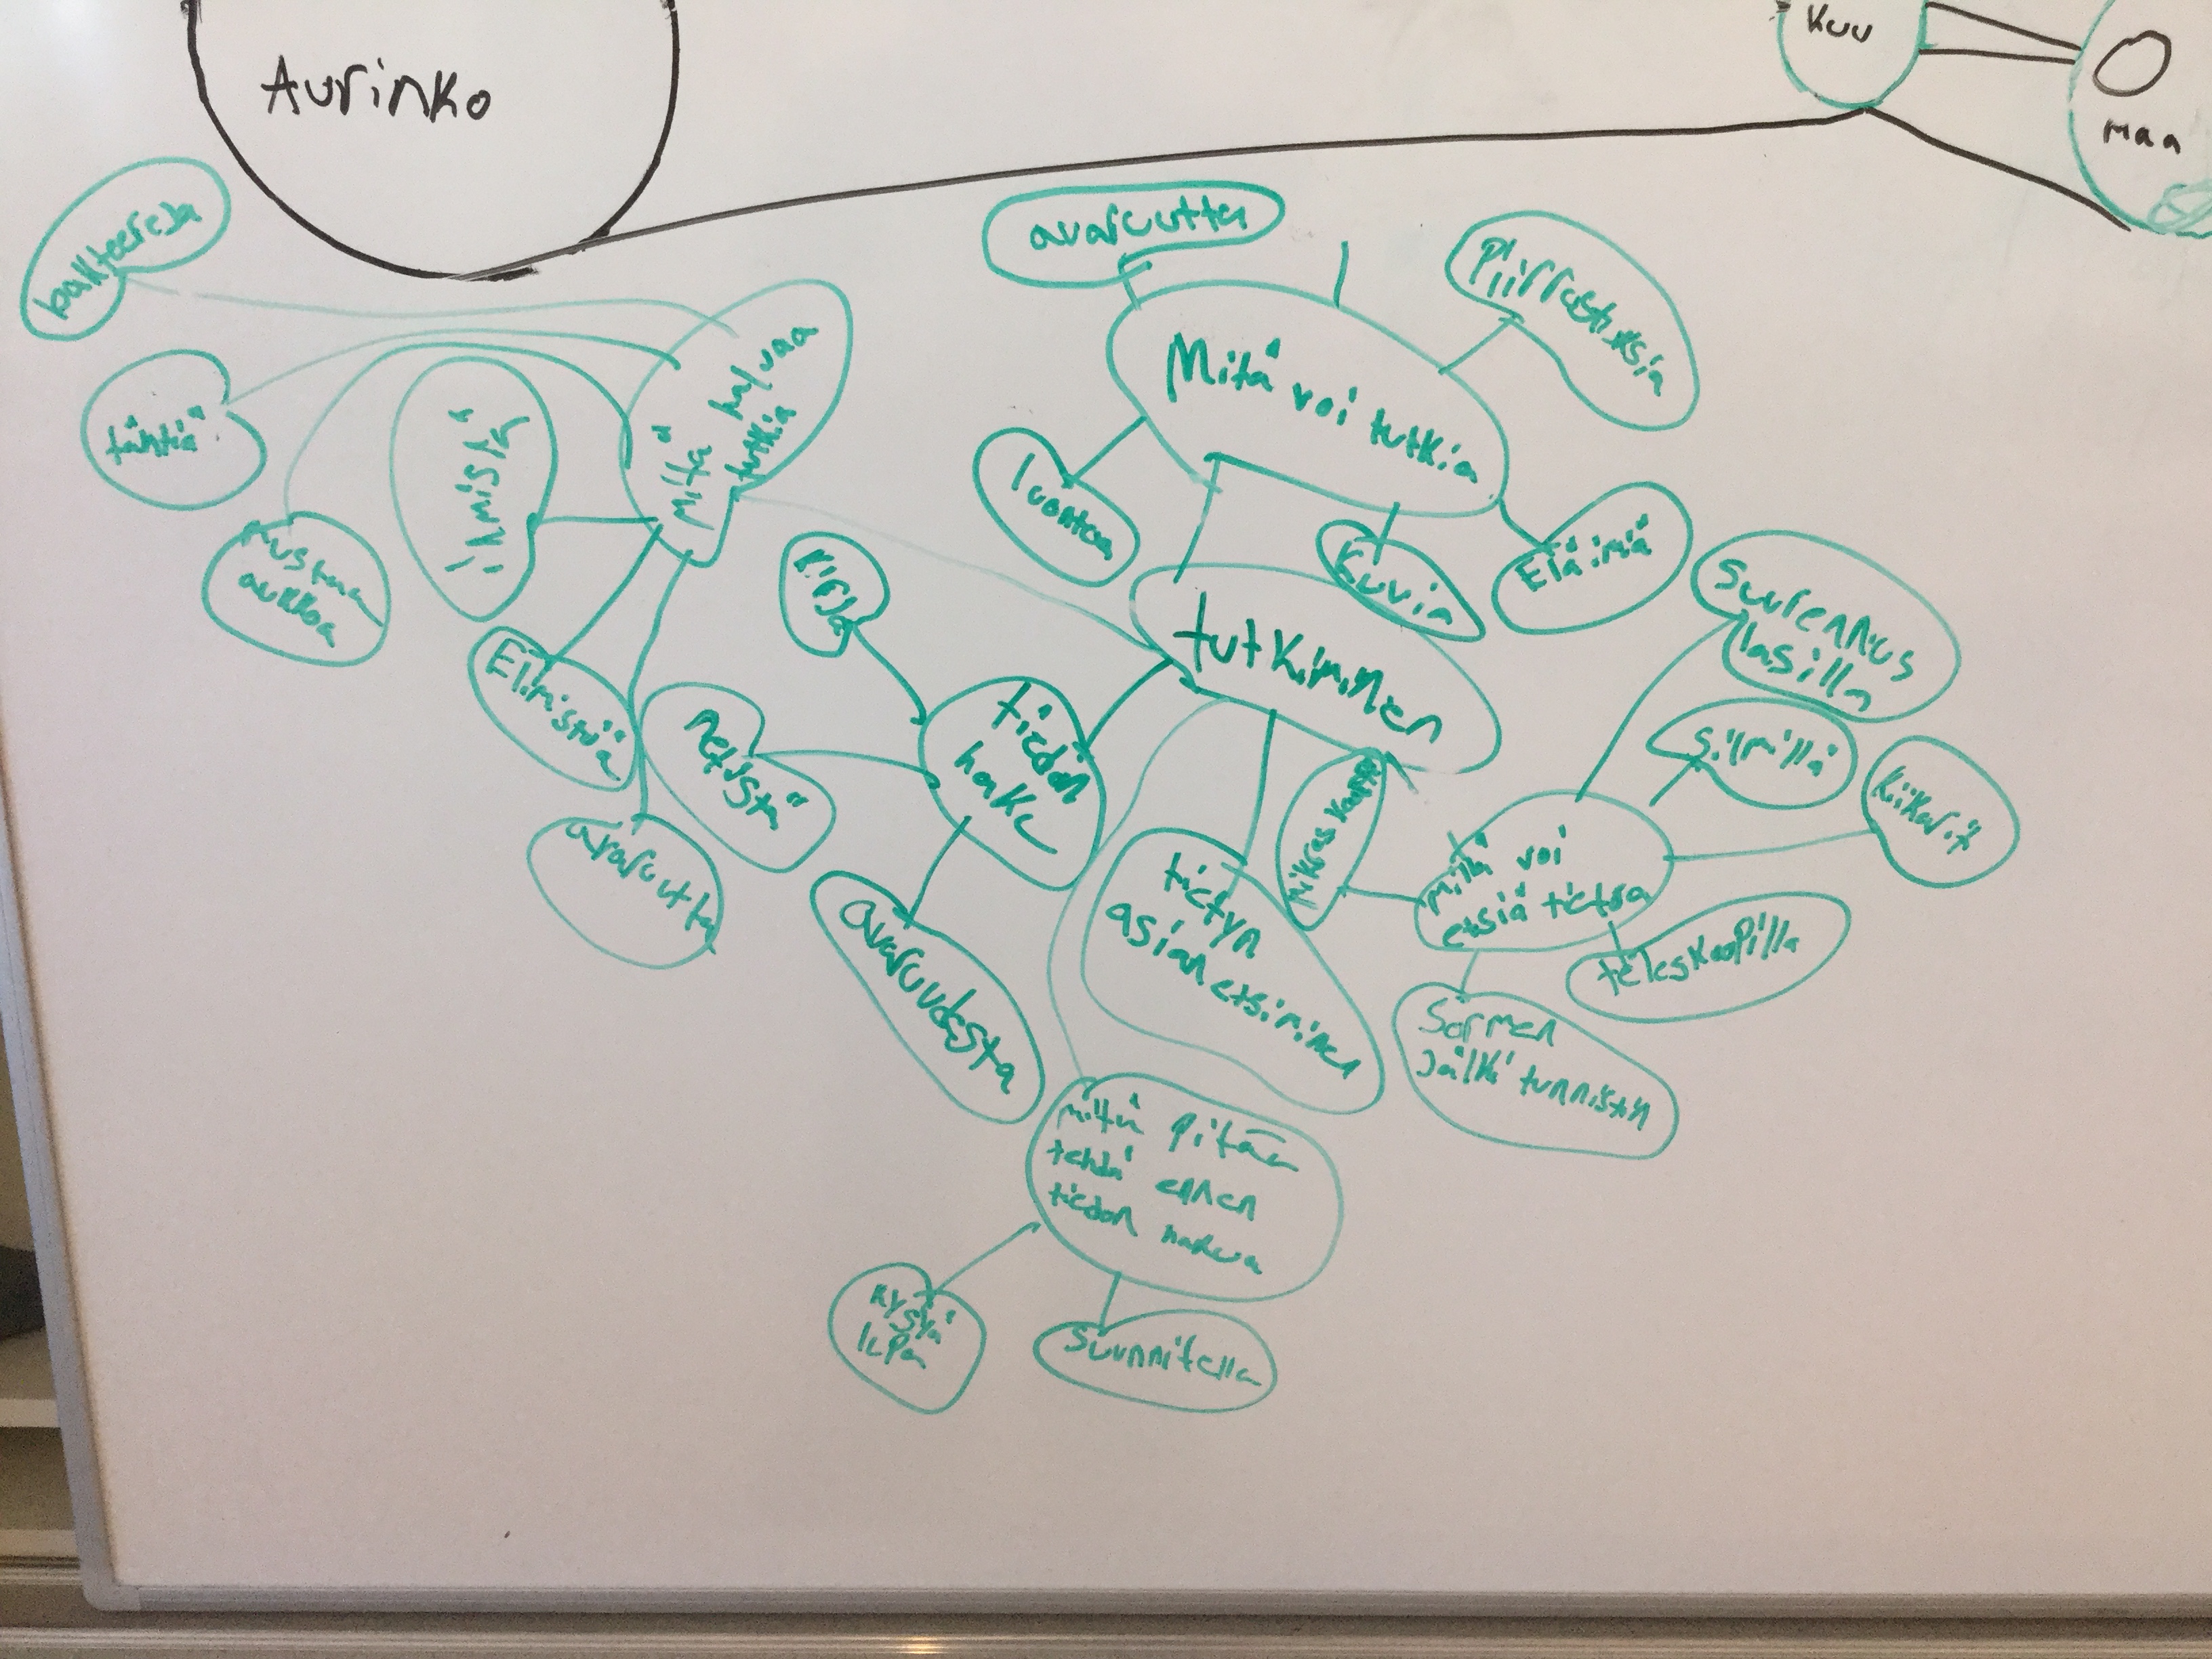 Aurinko
Kuu
Maa
bakteereja
tähtiä
mustaa
aukkoa
ihmisiä
Mitä haluaa
tutkia
Elimistöä
avaruutta
avaruutta
Piirrustuksia
Mitä voi tutkia
luontoa
Kuvia
Eläimiä
tutkiminen
kirja
netistä
tiedon
haku
avaruudesta
tietyn
asian etsiminen
Mikroskooppi
millä voi
etsiä tietoa
Suurennus
lasilla
silmillä
kiikarit
teleskoopilla
Sormen
jälki tunnistin
mitä pitää
tehdä ennen
tiedon hakua
kysyä
lupa
suunnitella